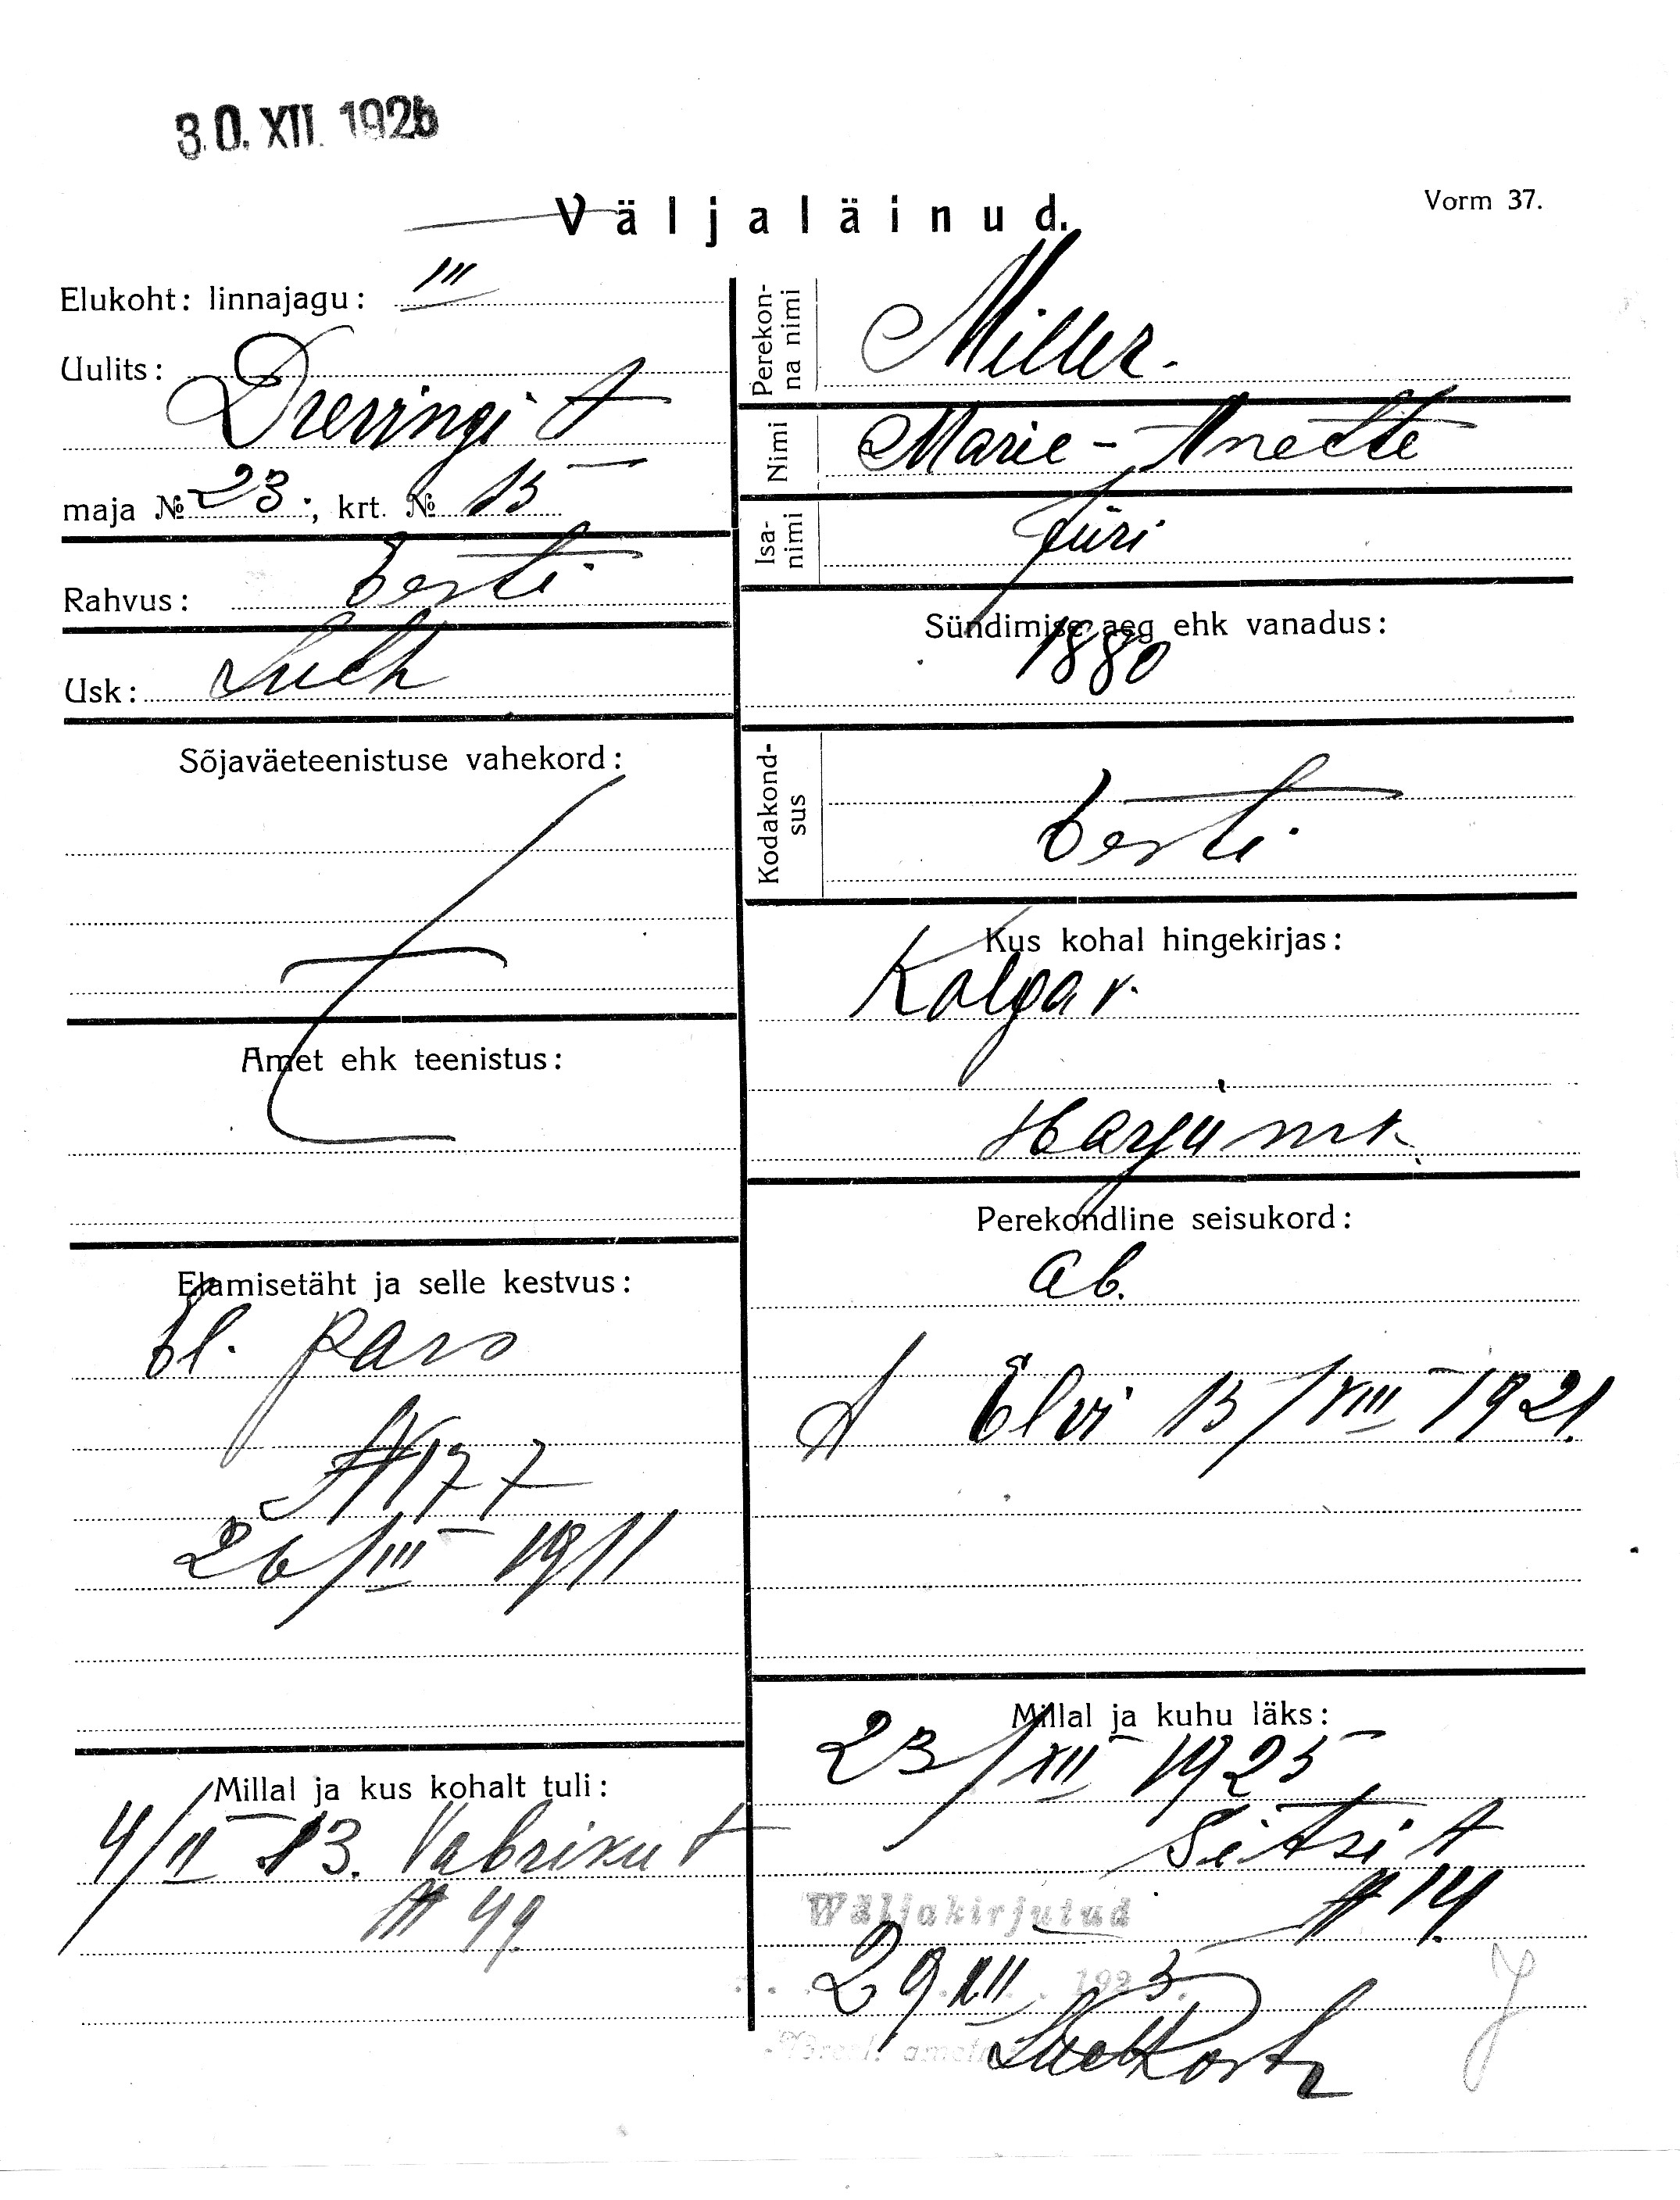 30. XII. 1925
Väljaläinud.
Vorm 37.
Elukoht: linnajagu: III
Uulits:
Drevingi t
maja № 23; krt. № 15
Rahvus: Eesti
Usk: Luth
Sõjaväeteenistuse vahekord:
Amet ehk teenistus:
Elamisetäht ja selle kestvus:
El. pass
№ 177
26/III 1911
Millal ja kus kohalt tuli:
4/II 13. Vabriku t
№ 49.
Perekonna nimi
Miller.
Nimi
Marie-Anette
Isanimi
Jüri
Sündimise aeg ehk vanadus:
1880
Kodakondsus
Eesti
Kus kohal hingekirjas:
Kolga v.
Harju mk.
Perekondline seisukord:
ab.
t Elvi 15/VIII 1921.
Millal ja kuhu läks:
23/XII 1925
Sitsi t
№ 14.
Wäljakirjutud
29. XII. 1925.